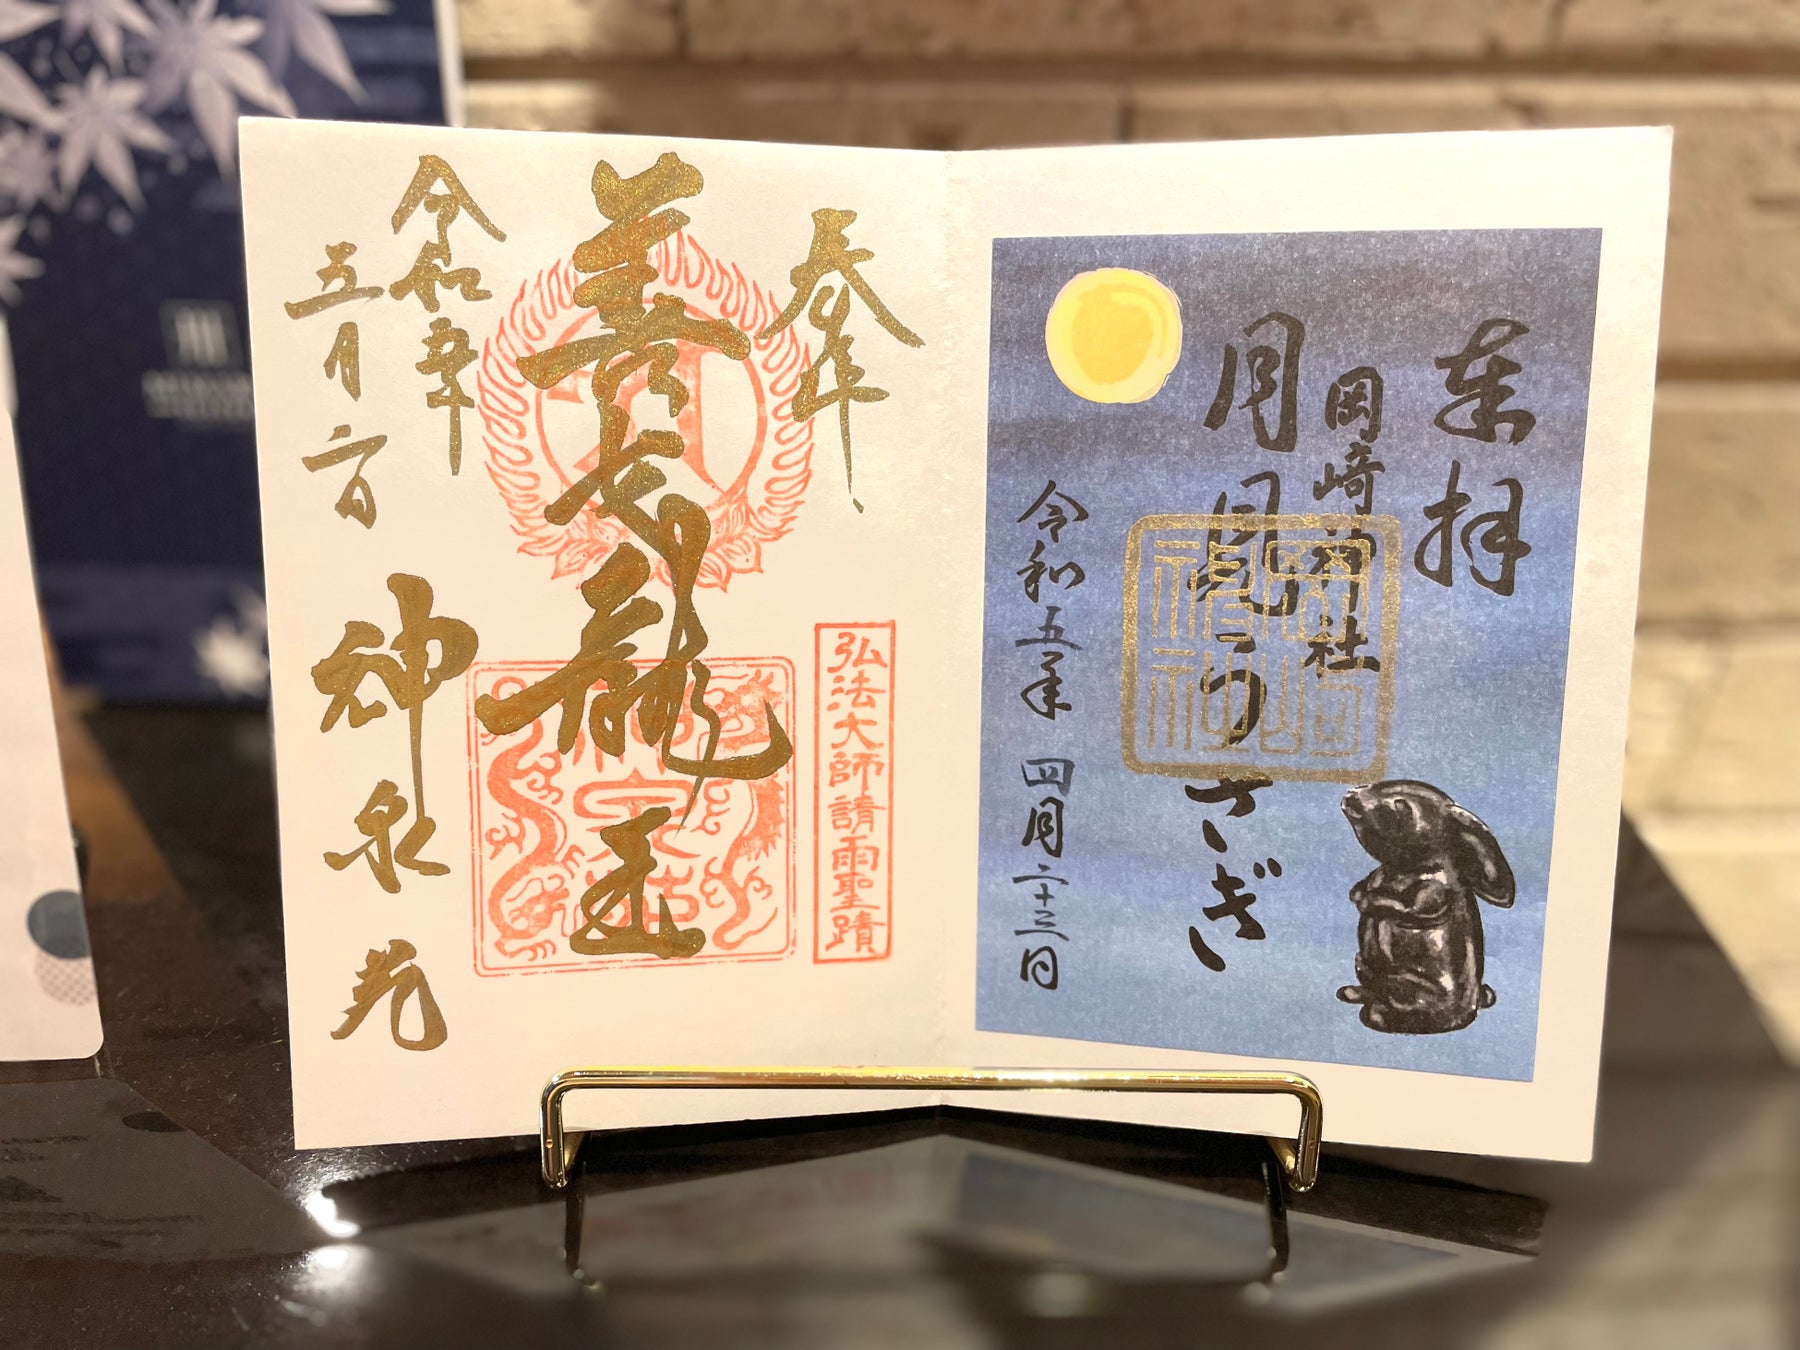 奉拝
岡崎神社
月見うさぎ
令和五年 四月二十三日
岡崎神社
奉拝
弘法大師請雨聖蹟
善女龍王
令和五年
五月六日
神泉苑